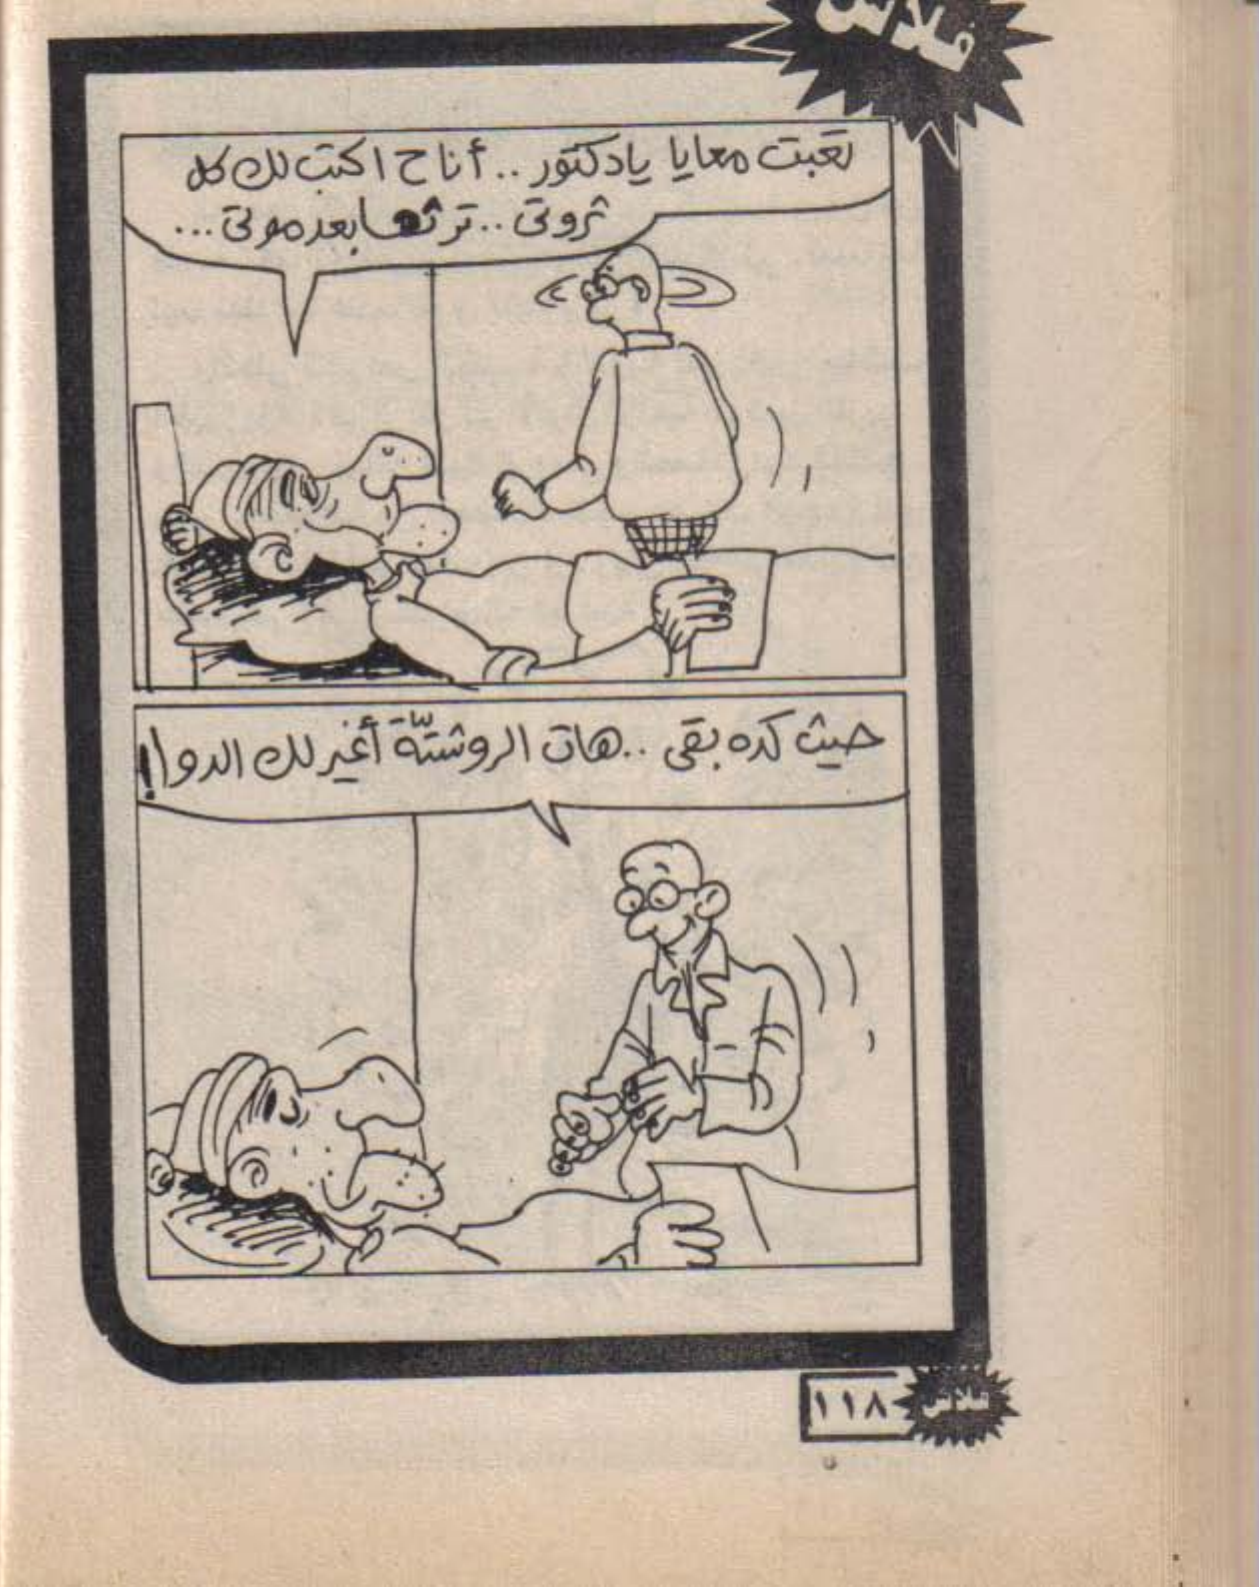 فلاش
تعبت معايا يادكتور .. أنا ح اكتب لك كل
ثروتى .. ترثها بعد موتى ...
حيث كده بقى .. هات الروشتّة أغير لك الدوا!
١١٨
فلاش